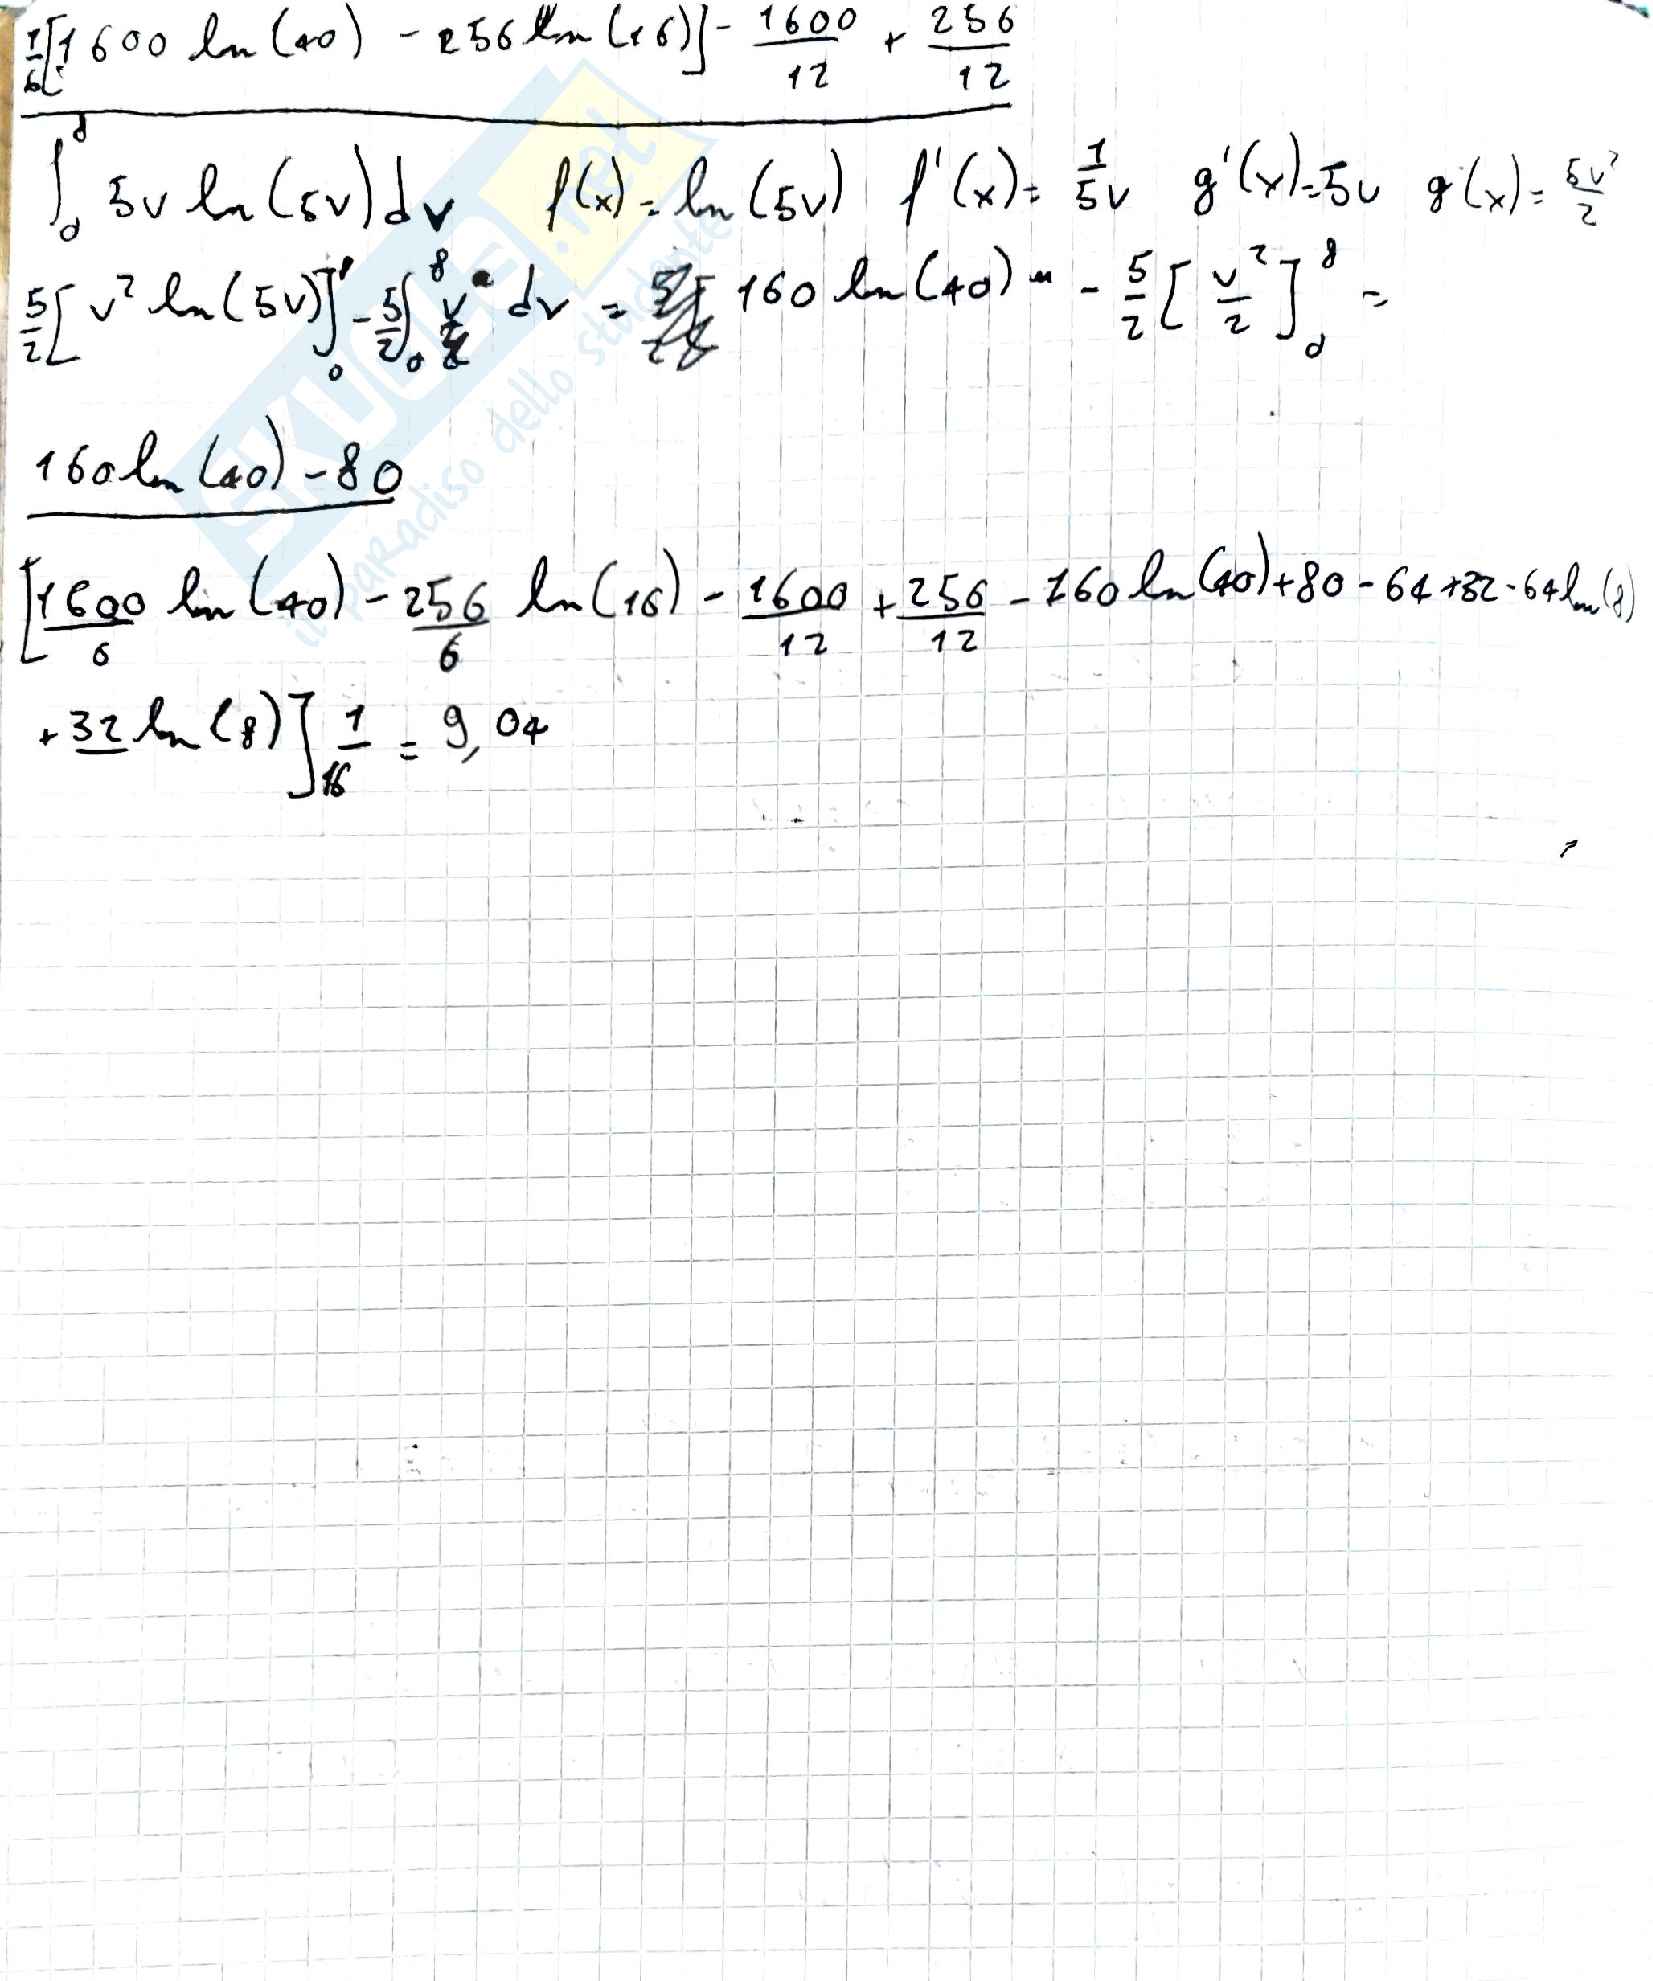 1/6[1600 ln(40) - 256 ln(16)] - 1600/12 + 256/12
∫₀⁸ 5v ln(5v)dv f(x)= ln(5v) f'(x)= 1/5v g'(x)=5v g(x)= 5v²/2
5/2[v² ln(5v)]₀⁸ - 5/2∫₀⁸ v dv = 160 ln(40) - 5/2[v²/2]₀⁸ =
160 ln(40) - 80
[1600/6 ln(40) - 256/6 ln(16) - 1600/12 + 256/12 - 160 ln(40) + 80 - 64 + 32 - 64 ln(8)
+ 32 ln(8)] 1/16 = 9,04
SKUOLA.net
il paradiso dello studente